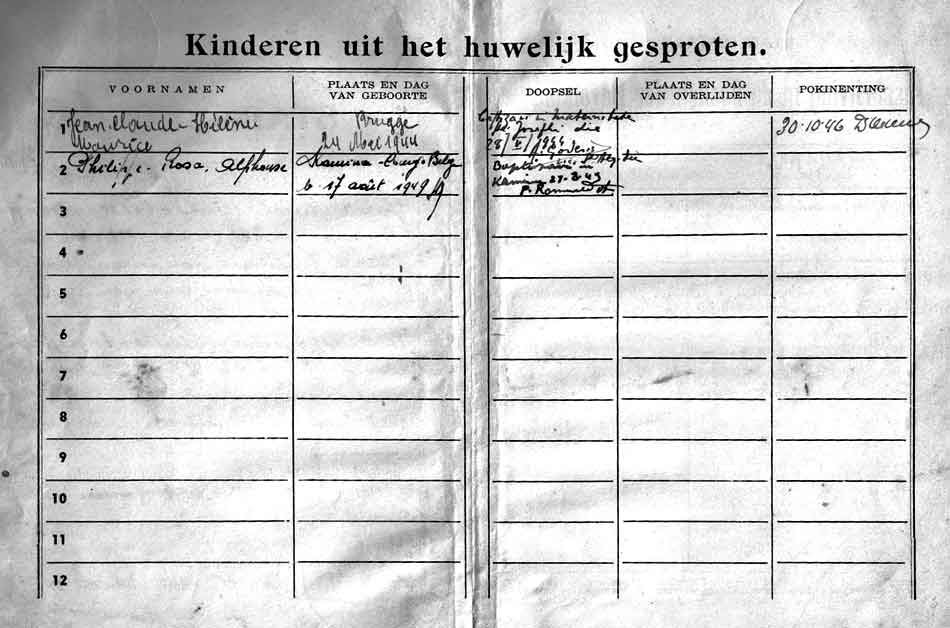 Kinderen uit het huwelijk gesproten.
VOORNAMEN
PLAATS EN DAG
VAN GEBOORTE
DOOPSEL
PLAATS EN DAG
VAN OVERLIJDEN
POKINENTING
1 Jean-Claude-Hélène
Maurice
Brugge
24 Mei 1944
in materniteit
St. Joseph die
28/V/1944
30-10-46
2 Philippe. Rosa. Alphonse
Kamina-Congo Belge
le 17 août 1949
Kamina 27-8-49
3
4
5
6
7
8
9
10
11
12